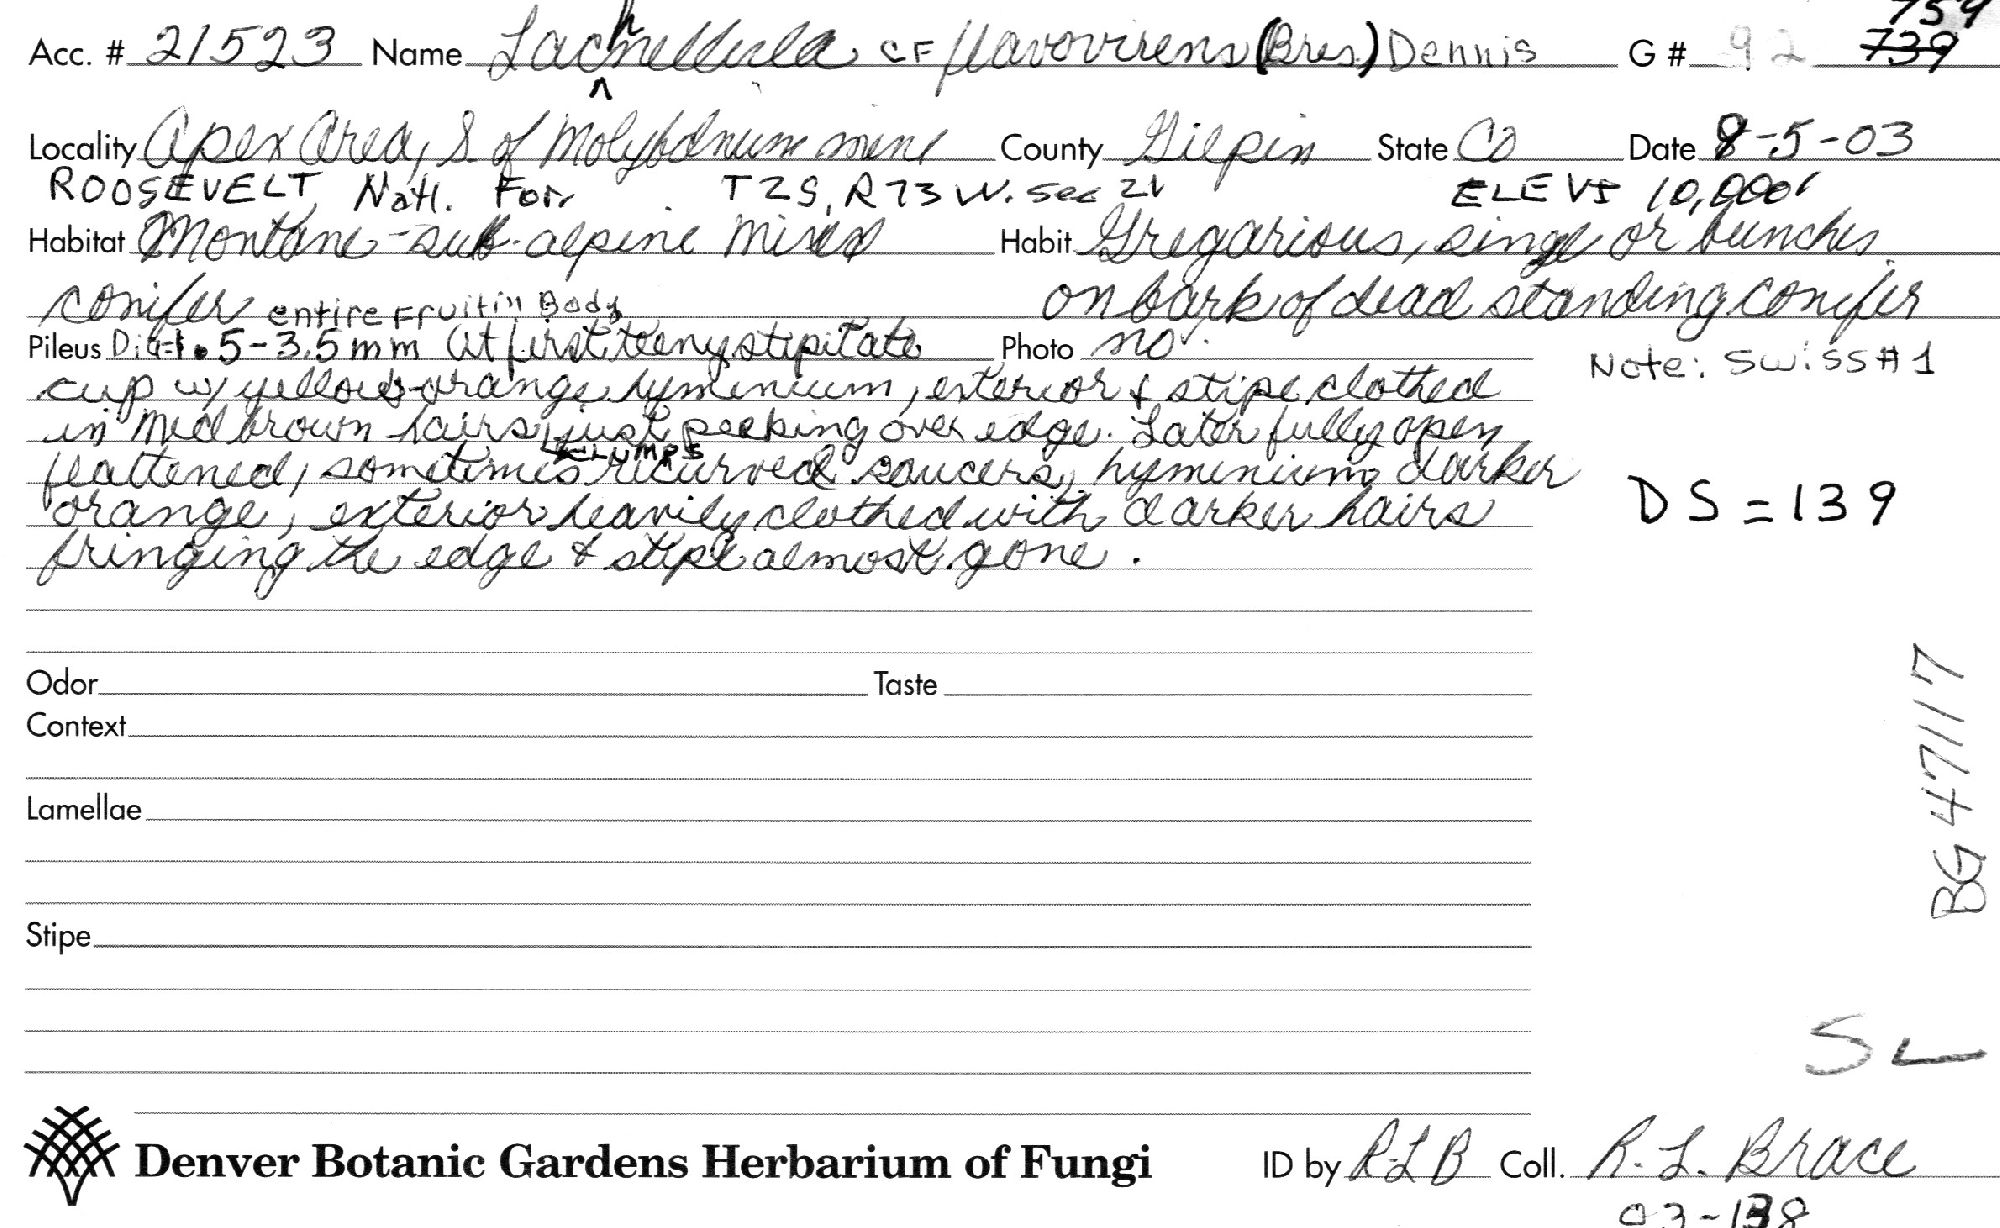 754
Acc. # 21523 Name Lachnellula CF flavovirens (Bres.) Dennis G # 92 739
Locality Apex Area, S. of Molybdnum mine County Gilpin State CO Date 8-5-03
ROOSEVELT Natl. For T2S, R73W. Sec 21 ELEV 10,000'
Habitat Montane-sub-alpine Mixed Habit Gregarious, singl or bunches
conifer entire Fruitin Body on bark of dead standing conifer
Pileus .5-3.5mm At first teeny stipitate Photo no.
Note: Swiss #1
cup w/ yellow-orange hyminium, exterior & stipe clothed
in Med brown hairs just peeking over edge. Later fully open,
clumps
flattened, sometimes recurved saucers, hyminium darker
orange, exterior heavily clothed with darker hairs
DS = 139
fringing the edge & stipe almost gone.
Odor Taste
Context
Lamellae
BG 47117
Stipe
Denver Botanic Gardens Herbarium of Fungi ID by RLB Coll. R. L. Brace